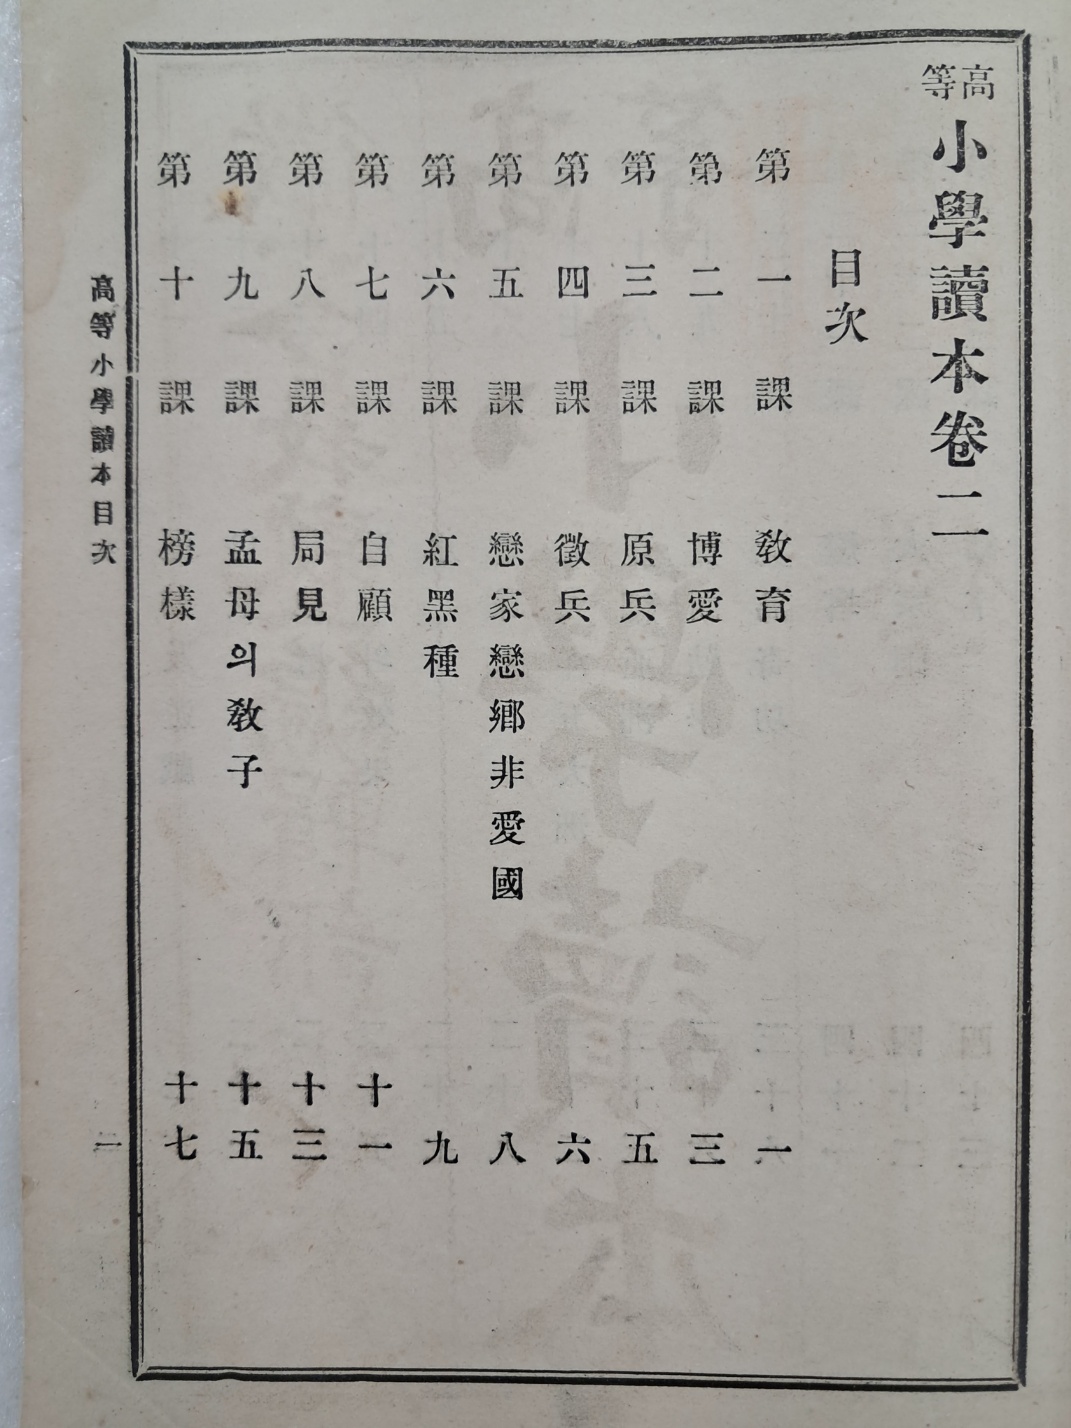 高等小學讀本卷二
目次
第一課 敎育 一
第二課 博愛 三
第三課 原兵 五
第四課 徵兵 六
第五課 戀家戀鄕非愛國 八
第六課 紅黑種 九
第七課 自顧 十一
第八課 局見 十三
第九課 孟母의敎子 十五
第十課 榜樣 十七
高等小學讀本目次
一